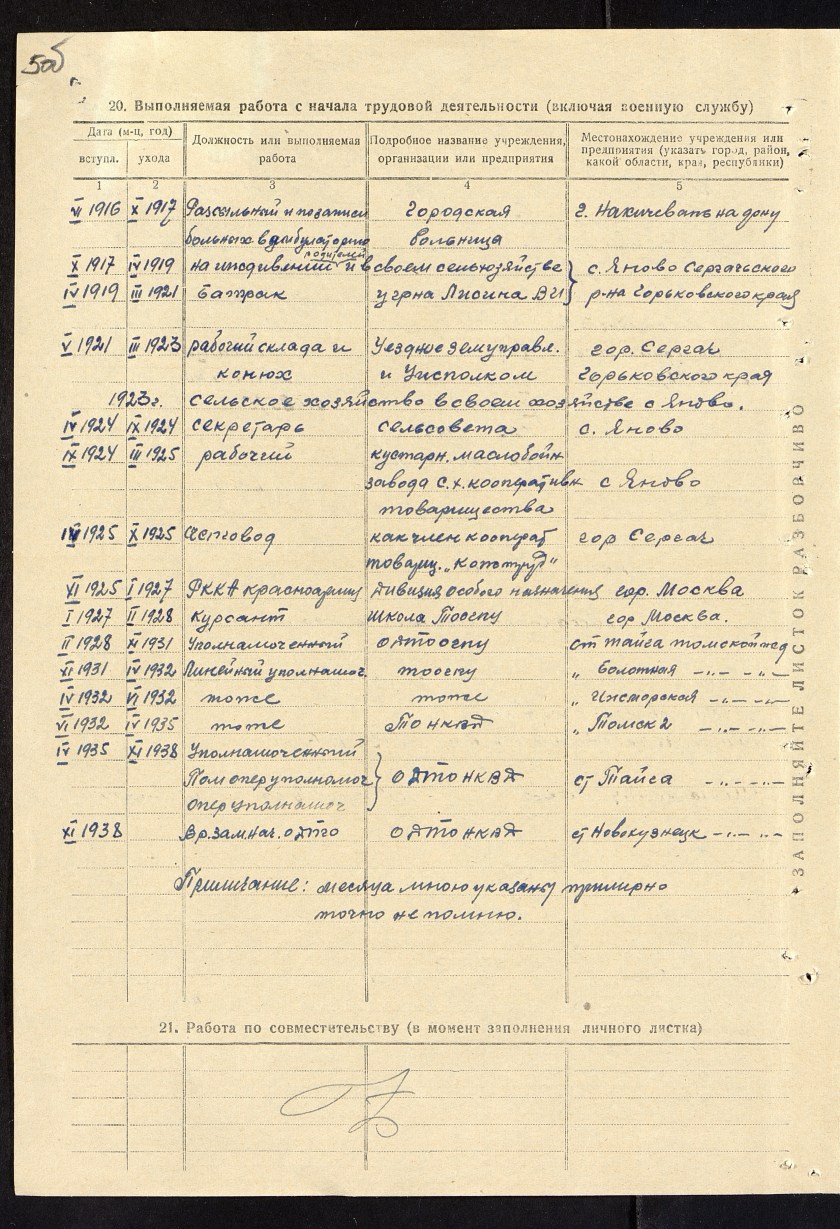 50б
20. Выполняемая работа с начала трудовой деятельности (включая военную службу)
Дата (м-ц, год)
вступл. ухода
Должность или выполняемая работа
Подробное название учреждения, организации или предприятия
Местонахождение учреждения или предприятия (указать город, район, какой области, края, республики)
1 2 3 4 5
VI 1916 X 1917 Рассыльный и по записи Городская г. Нахичевань на дону
больных в амбулаторию больница
родителей
X 1917 IV 1919 на иждивении и в своем сельхозяйстве с. Яново Сергачьского
IV 1919 III 1921 батрак у грна Лисина В И р-на Горьковского края
V 1921 III 1923 рабочий склада и Уездное земуправл. гор. Сергач
конюх и Уисполком Горьковского края
1923 г. сельское хозяйство в своем хозяйстве с Яново.
IV 1924 IX 1924 секретарь сельсовета с. Яново
IX 1924 III 1925 рабочий кустарн. маслобойн
завода с. х. кооперативн с Яново
товарищества
1925 X 1925 Счетовод как член кооперат гор Сергач
товарищ.
XI 1925 I 1927 РККА красноармеец дивизия особого назначения гор. Москва
I 1927 II 1928 Курсант школа Тоогпу гор. Москва.
II 1928 XI 1931 Уполномоченный одтоогпу ст тайга томской жд
XI 1931 IV 1932 Линейный уполномоч. тоогпу „ Болотная -„- -„-
IV 1932 VI 1932 тоже тоже „ Ижморская -„- -„-
VI 1932 IV 1935 тоже То нквд „ Томск 2 -„- -„-
IV 1935 XI 1938 Уполномоченный
Пом оперуполномоч одто нквд ст Тайга -„- -„-
оперуполномоч
XI 1938 Вр. зам. нач. одто одто нквд ст Новокузнецк -„- -„-
Примичание: месяца мною указаны примирно
точно не помню.
ЗАПОЛНЯЙТЕ ЛИСТОК РАЗБОРЧИВО
21. Работа по совместительству (в момент заполнения личного листка)